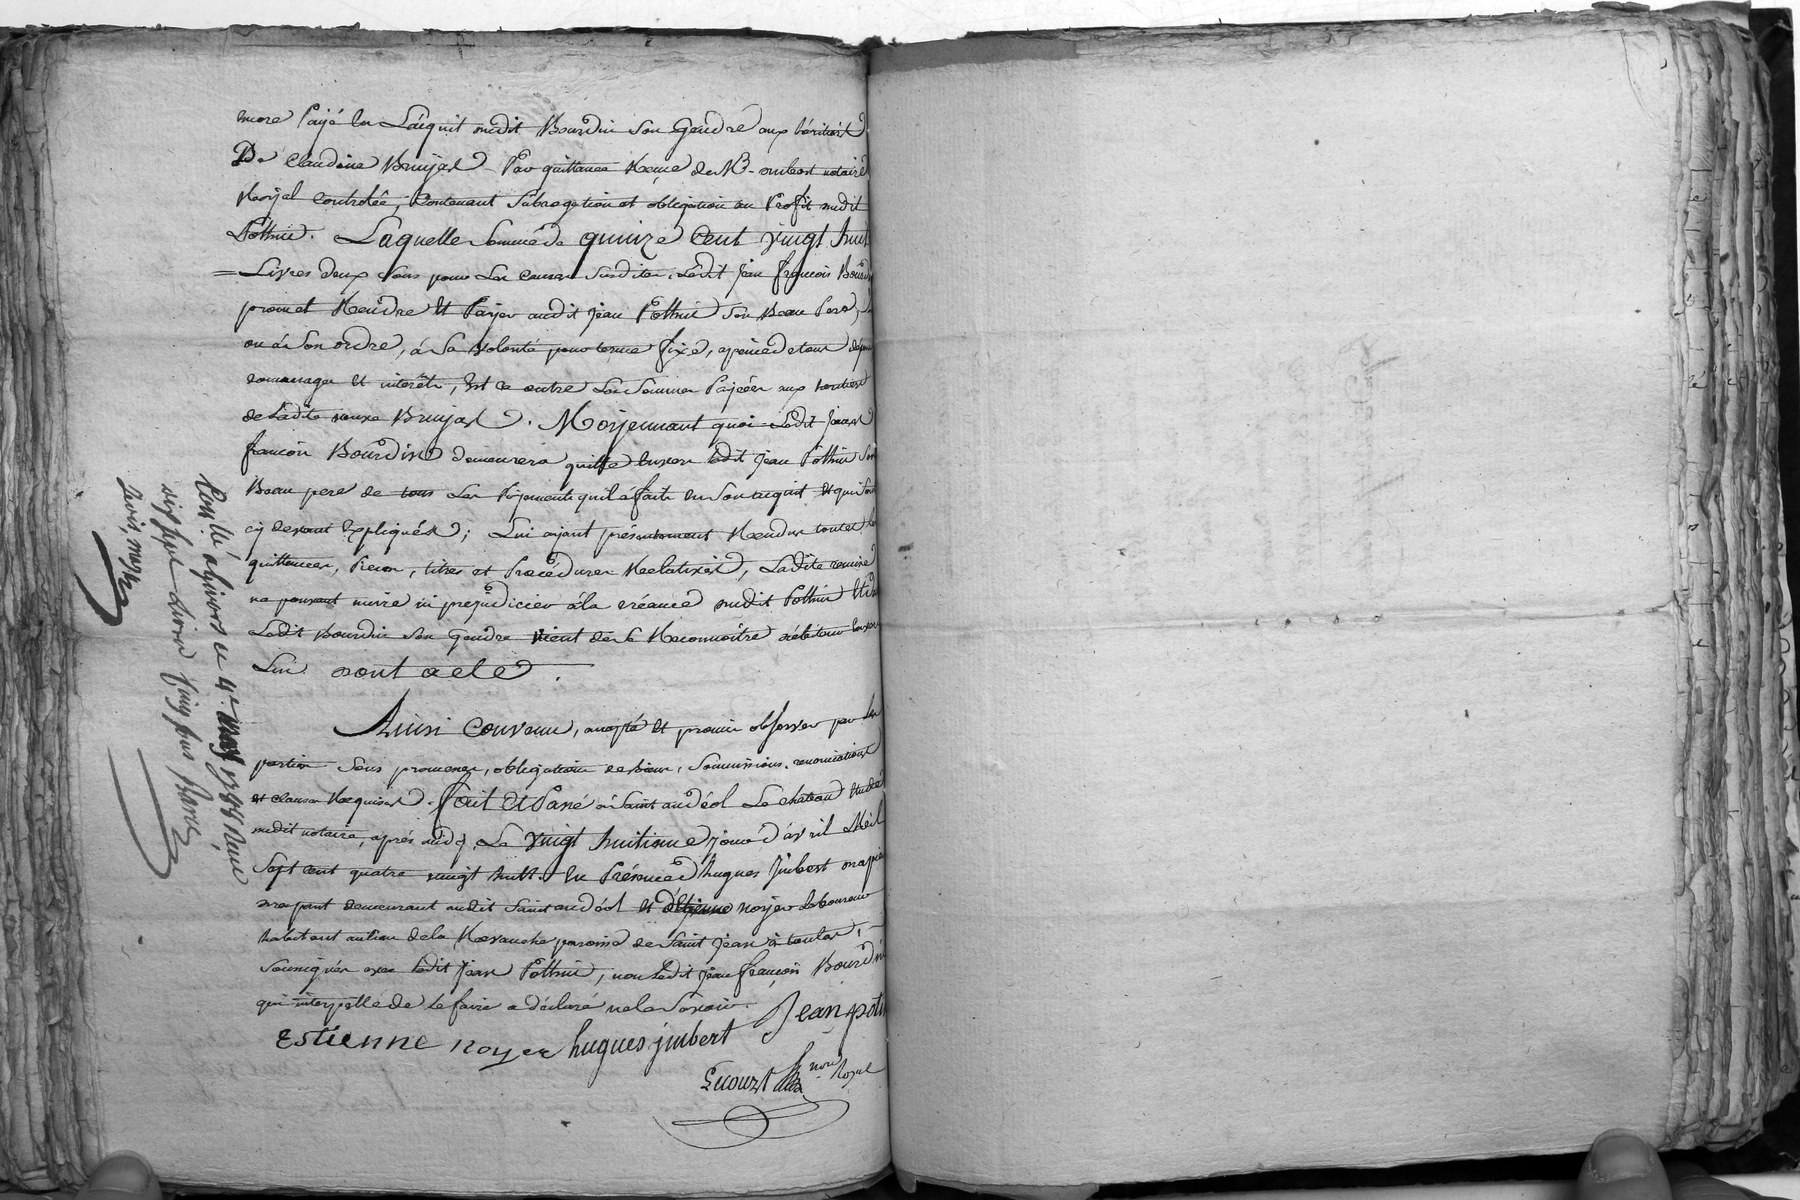 encore Payé en L'acquit audit Bourdin Son Gendre aux héritiers
De Claudine Brujas Par quittance Reçue de Me ombert notaire
Royal Controlée, Contenant Subrogation et obligation au Profit audit
Pothin. Laquelle Somme de quinze Cent vingt huit
= Livres deux Sous pour Les Causes Susdites, Ledit Jean françois Bourdin
promet Rendre Et Payer audit Jean Pothin Son Beau Pere,
ou à Son ordre, à Sa Volonté pour terme fixe, apeine de tous dépens
domages et interêts, Est ce outre Les Sommes Payées aux heritiers
de Ladite veuve Brujas. Moyennant quoi Ledit Jean
françois Bourdin demeurera quitte Envers Ledit Jean Pothin Son
Beau pere de tous Les Payements qu'il à faits En Son acquit Et qui Sont
cy devant Expliqués; Lui ayant présentement Rendu toutes les
quittances, Pieces, titres et Procédures Relatives, Ladite remise
ne pouvant nuire ni prejudicier à la créance audit Pothin
Ledit Bourdin Son Gendre vient de se Reconnoître débiteur Envers
Lui dont acte.
Ainsi Convenu, accepté Et promis observer par Les
parties Sous promesses, obligations de biens, Soumissions, renonciations
et clauses Requises. fait Et Passé à Saint andéol Le chateau Etude
dudit notaire, après midy, Le vingt huitieme jour d'avril Mil
Sept cent quatre vingt huit. En Présence d'hugues Jmbert
demeurant audit Saint andéol Et d'Etienne noyer Laboureur
habitant au lieu de la Revanche paroisse de Saint Jean à toulas,
Soussignés avec Ledit Jean Pothin, non Ledit Jean françois Bourdin
qui interpellé de le faire a déclaré ne le Savoir.
Estienne noyer hugues jmbert Jean poti
nore Royal
Conllé à givors ce 4e may 1788 Reçu
dix sept Livres cinq sous